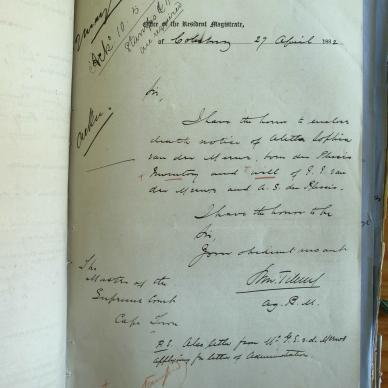 Ack' 10.5
Stamps
are required
Office of the Resident Magistrate,
of Colesberg 27 April 1882
Sir,
I have the honor to enclose
death notice of Aletta Sophia
van der Merwe, born du Plessis
Inventory and will of
der Merwe and A. S. du Plessis.
I have the honor to be
Sir,
Your obedient servant
Ag. R. M.
The
Master of the
Supreme Court
Cape Town
P.S. Also letter from Mr v. d. Merwe
applying for letter of Administration.